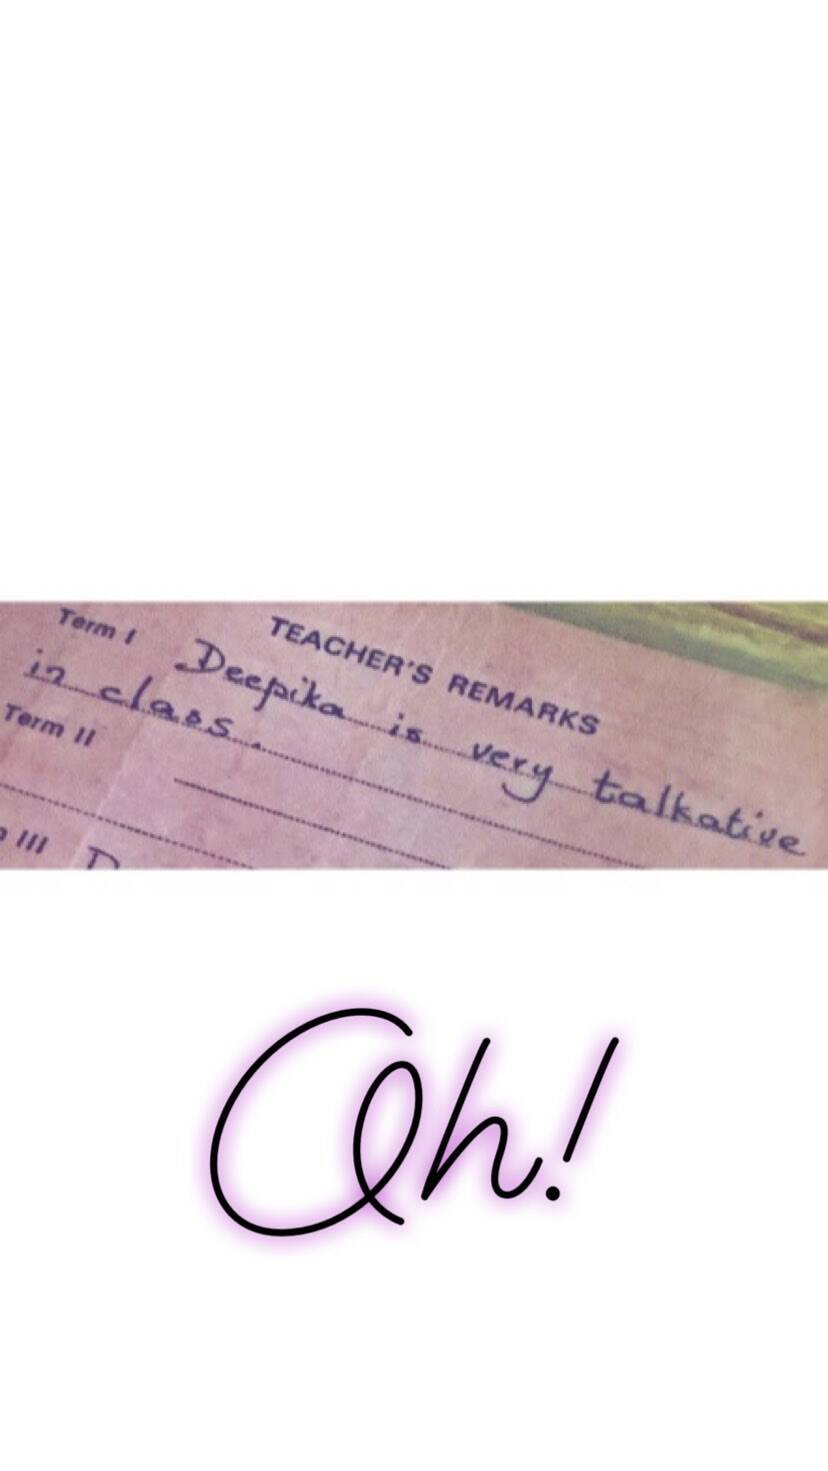 TEACHER'S REMARKS
Term I Deepika is very talkative
in class.
Term II
III D
Oh!